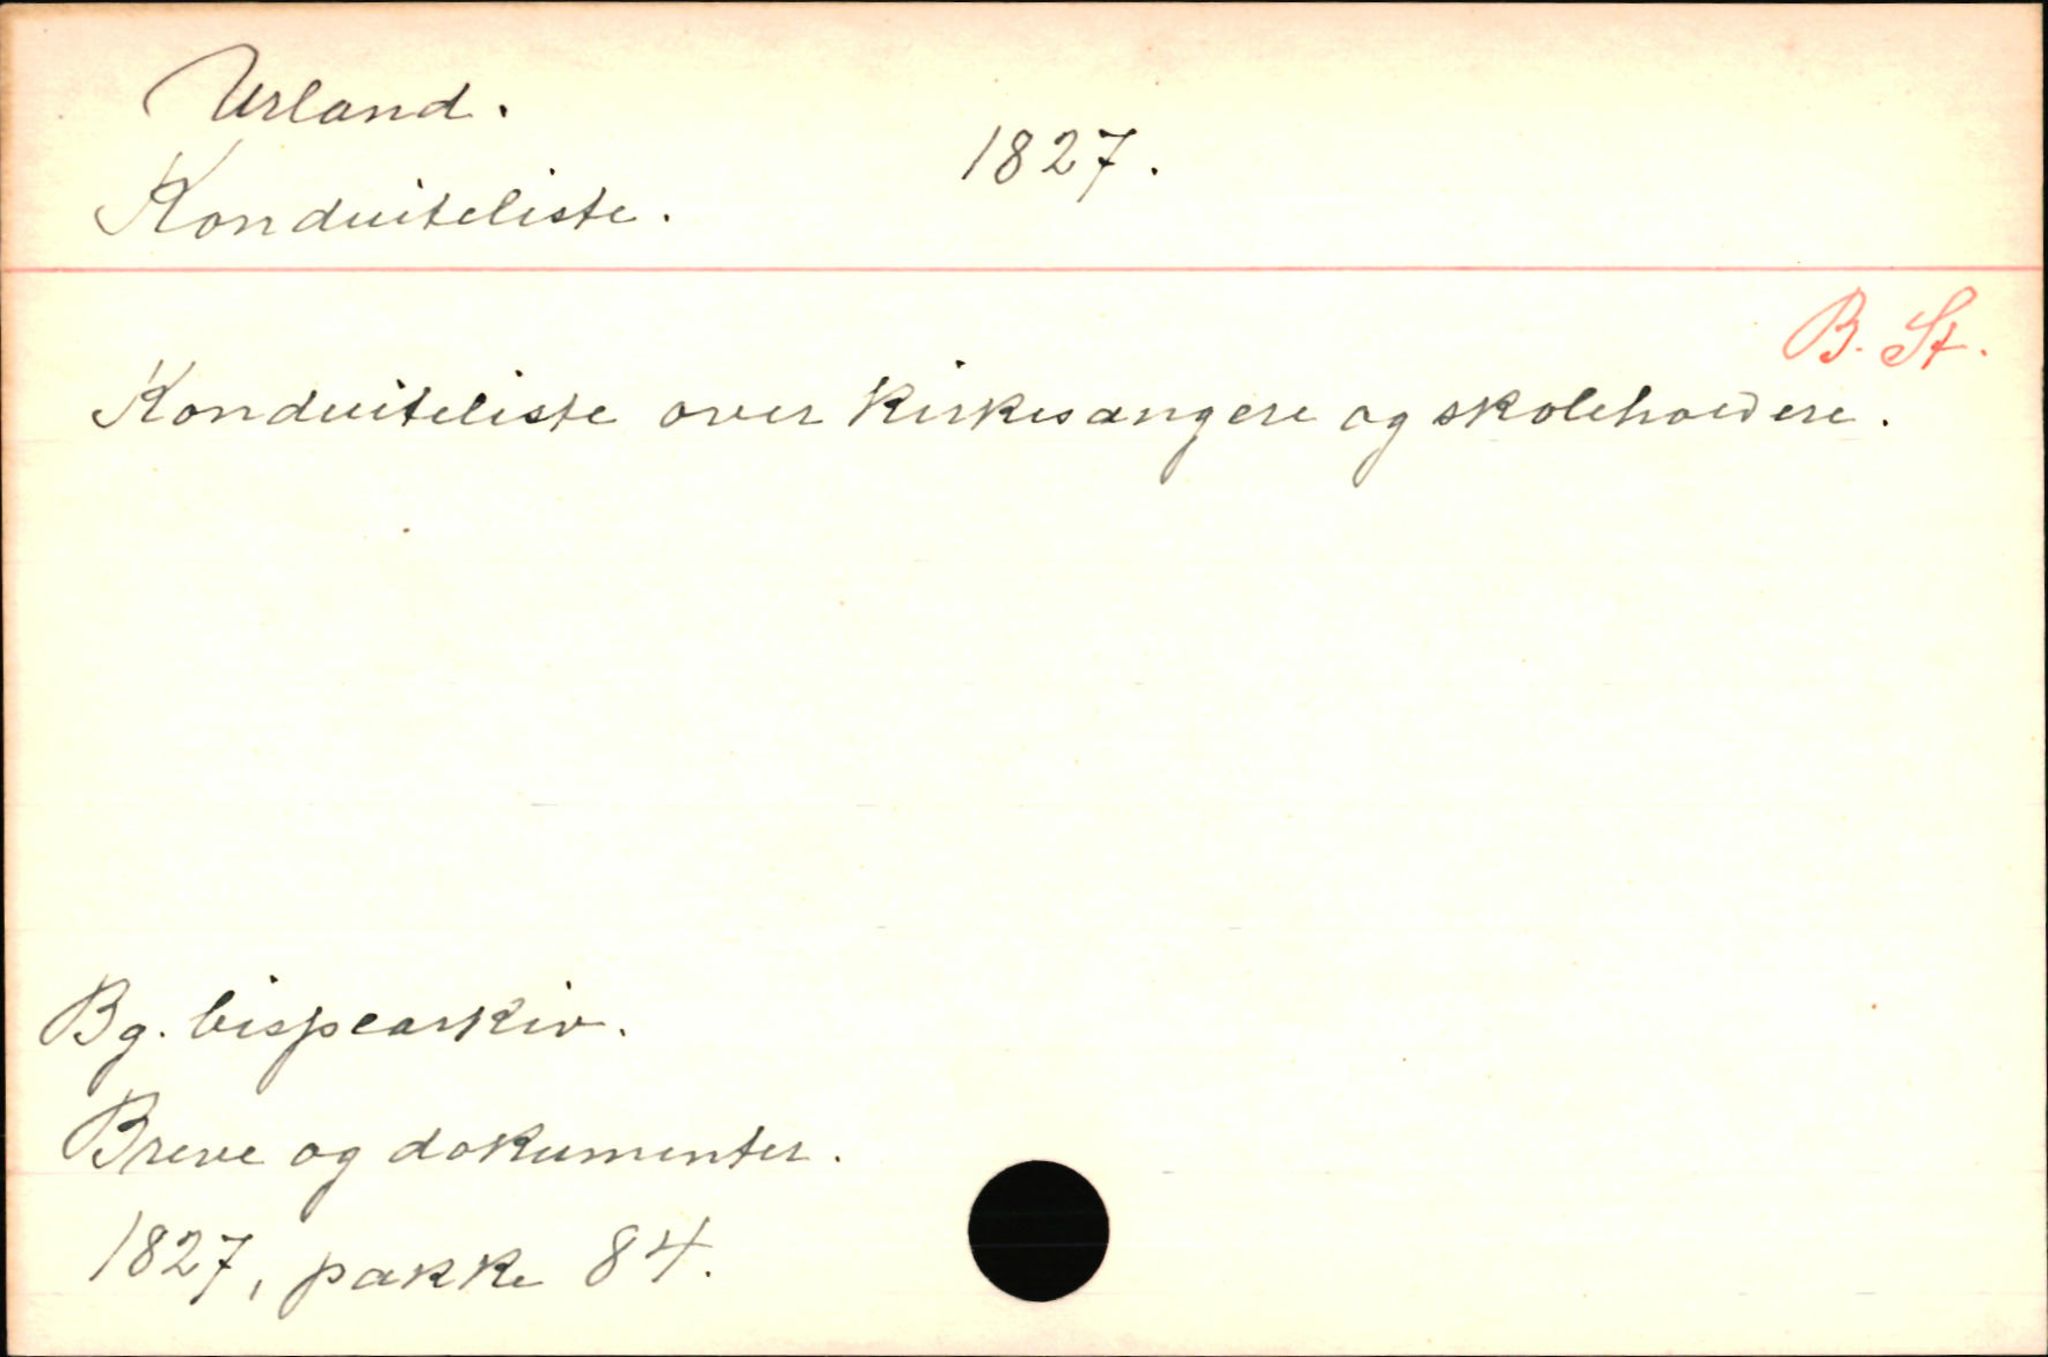 Urland.
1827.
Konduiteliste.
B. St.
Konduiteliste over kirkesangere og skoleholdere.
Bg. bispearkiv.
Breve og dokumenter.
1827, pakke 84.